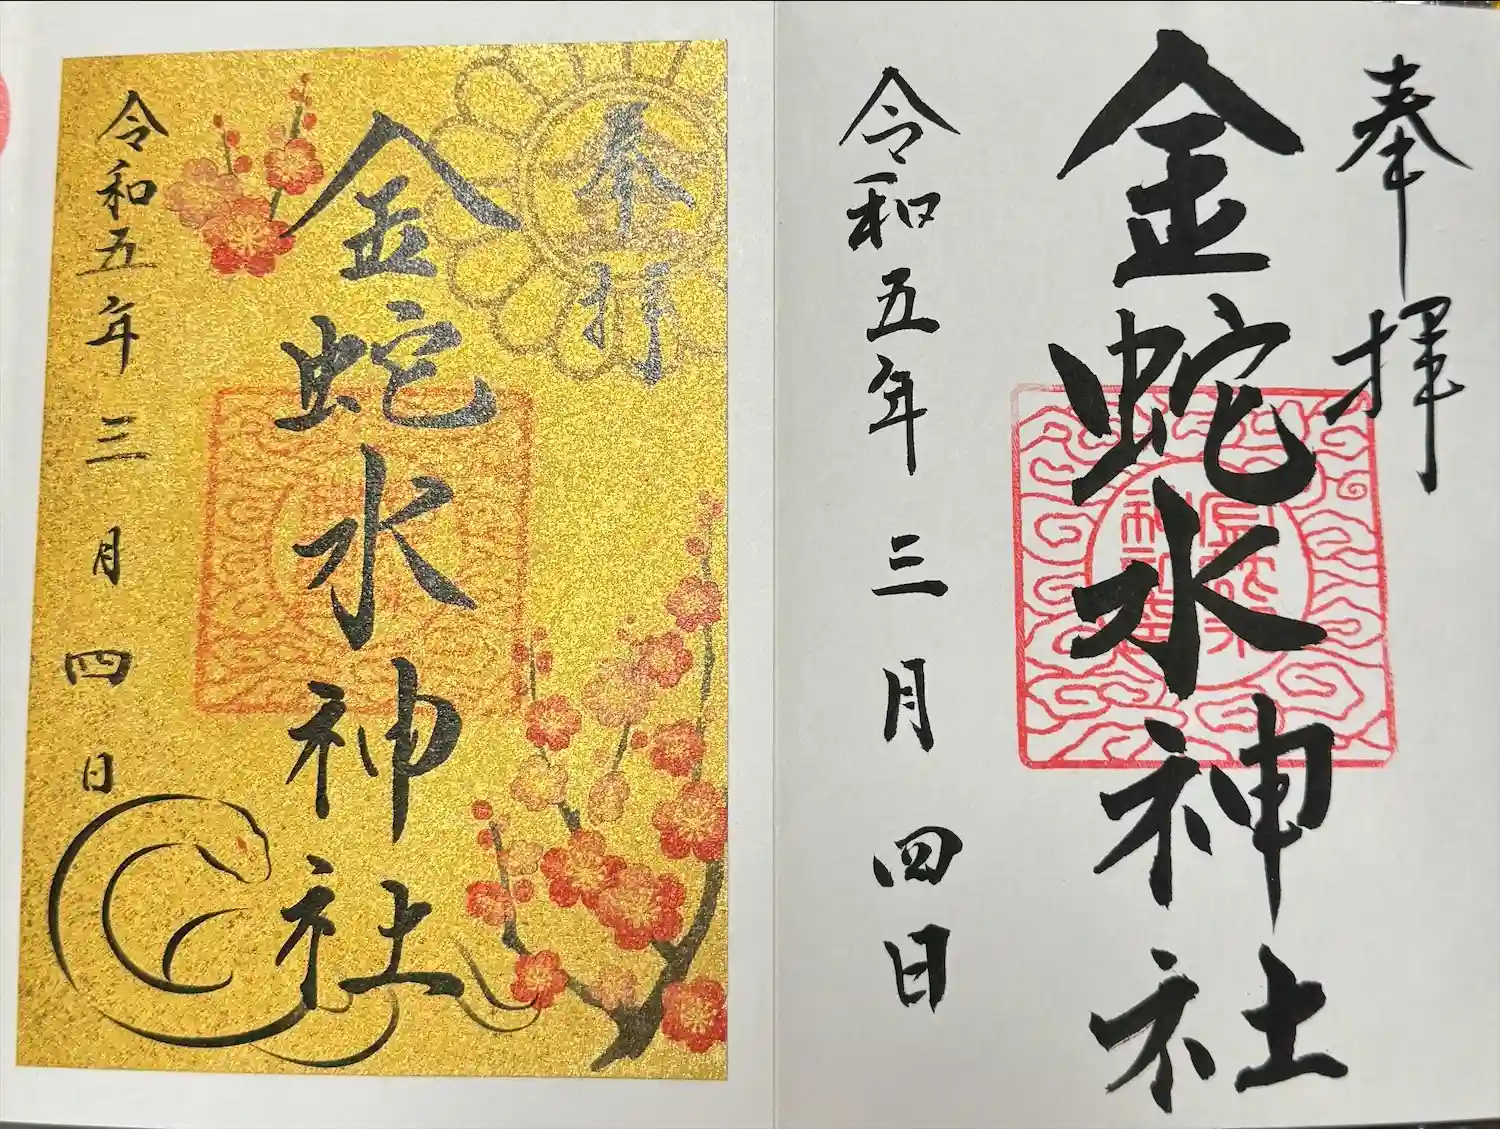 奉拝
金蛇水神社
令和五年三月四日
奉拝
金蛇水神社
令和五年三月四日